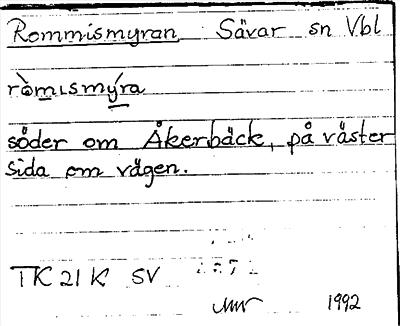 Rommismyran Sävar sn Vbl
ròmɪsmýra
söder om Åkerbäck, på väster
sida om vägen.
TK 21 K SV
1992